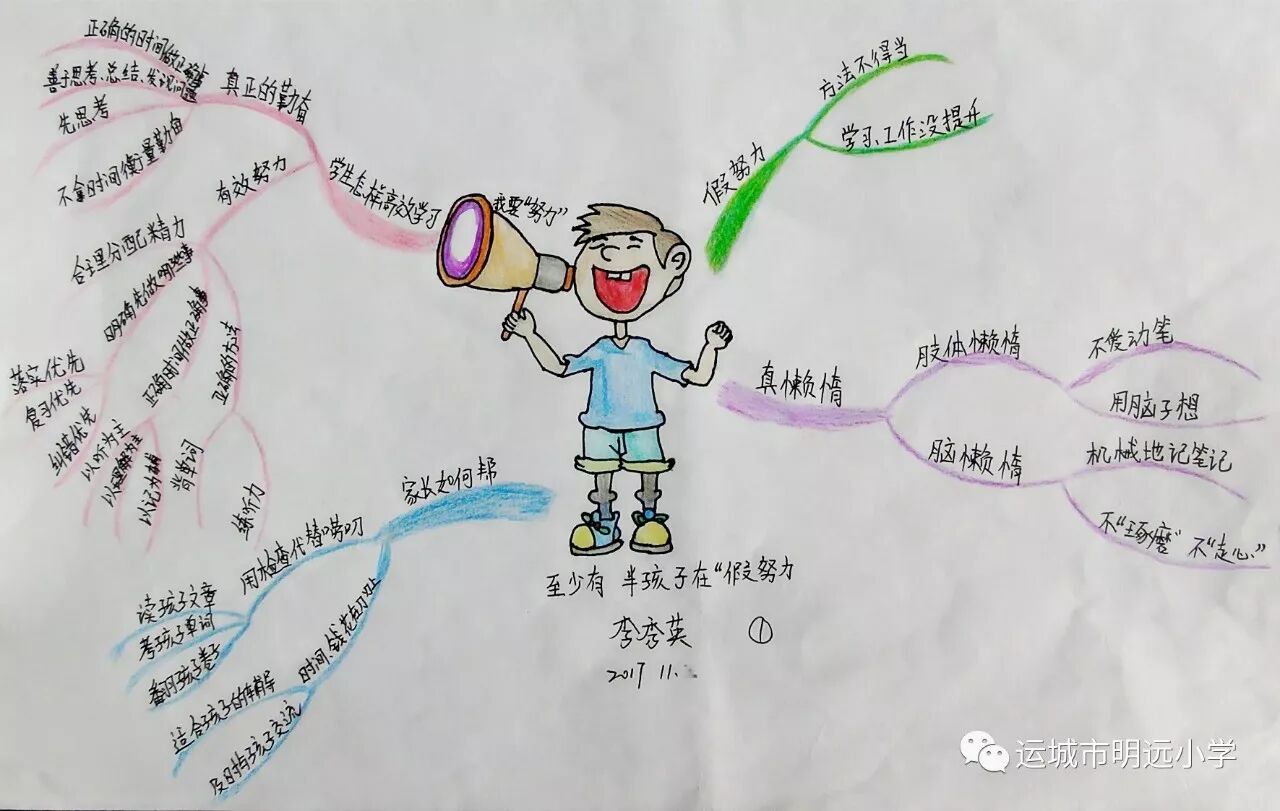 我要“努力”
假努力
方法不得当
学习、工作没提升
真懒惰
肢体懒惰
不爱动笔
用脑子想
脑懒惰
机械地记笔记
不“琢磨”不“走心”
家长如何帮
用检查代替唠叨
读孩子文章
考孩子单词
翻阅孩子卷子
时间、钱花在刀刃上
适合孩子的辅导
及时与孩子交流
学生怎样高效学习
真正的勤奋
正确的时间做正确事
善于思考、总结、发现问题
先思考
不拿时间衡量勤奋
有效努力
合理分配精力
明确先做哪些事
落实优先
复习优先
纠错优先
正确时间做正确事
以听为主
以理解为主
以记为辅
正确的方法
背单词
练听力
至少有 半孩子在“假努力
李秀英 ①
2017 11.
运城市明远小学